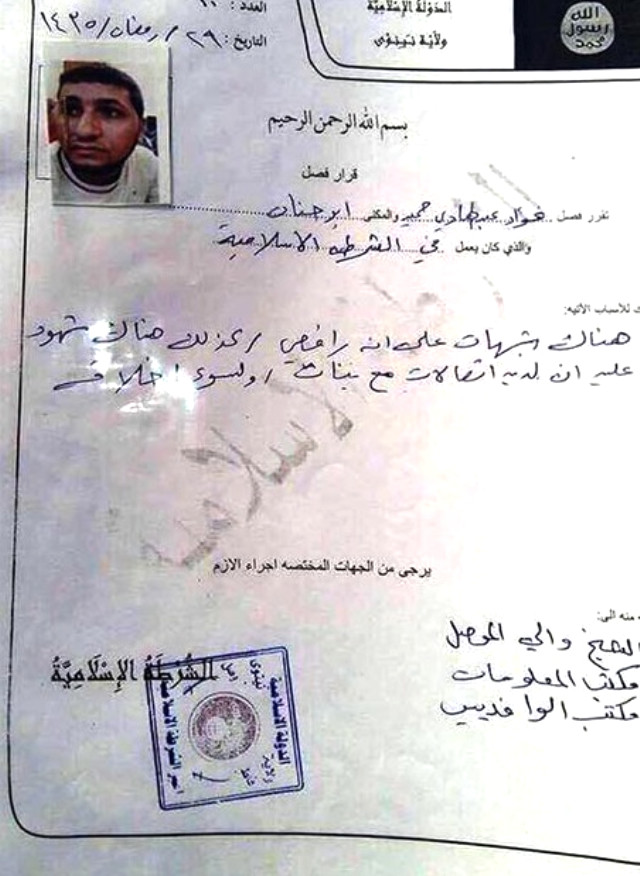 الدولة الإسلامية
ولاية نينوى
العدد :
التاريخ : ٢٩ / رمضان / ١٤٣٥
الله
رسول
محمد
بسم الله الرحمن الرحيم
قرار فصل
تقرر فصل فواد عبدهادي حميد والمكنى ابو حنان
والذي كان يعمل في الشرطة الاسلامية
للأسباب الآتيه:
هناك شبهات على انه رافضي / وكذلك هناك شهود
عليه ان لديه اتصالات مع بنات / ولسوء اخلاقه
يرجى من الجهات المختصه اجراء الازم
منه الى:
والي الموصل
مكتب المعلومات
مكتب الوافديين
الشرطة الإسلامية
الدولة الاسلامية
ولاية نينوى